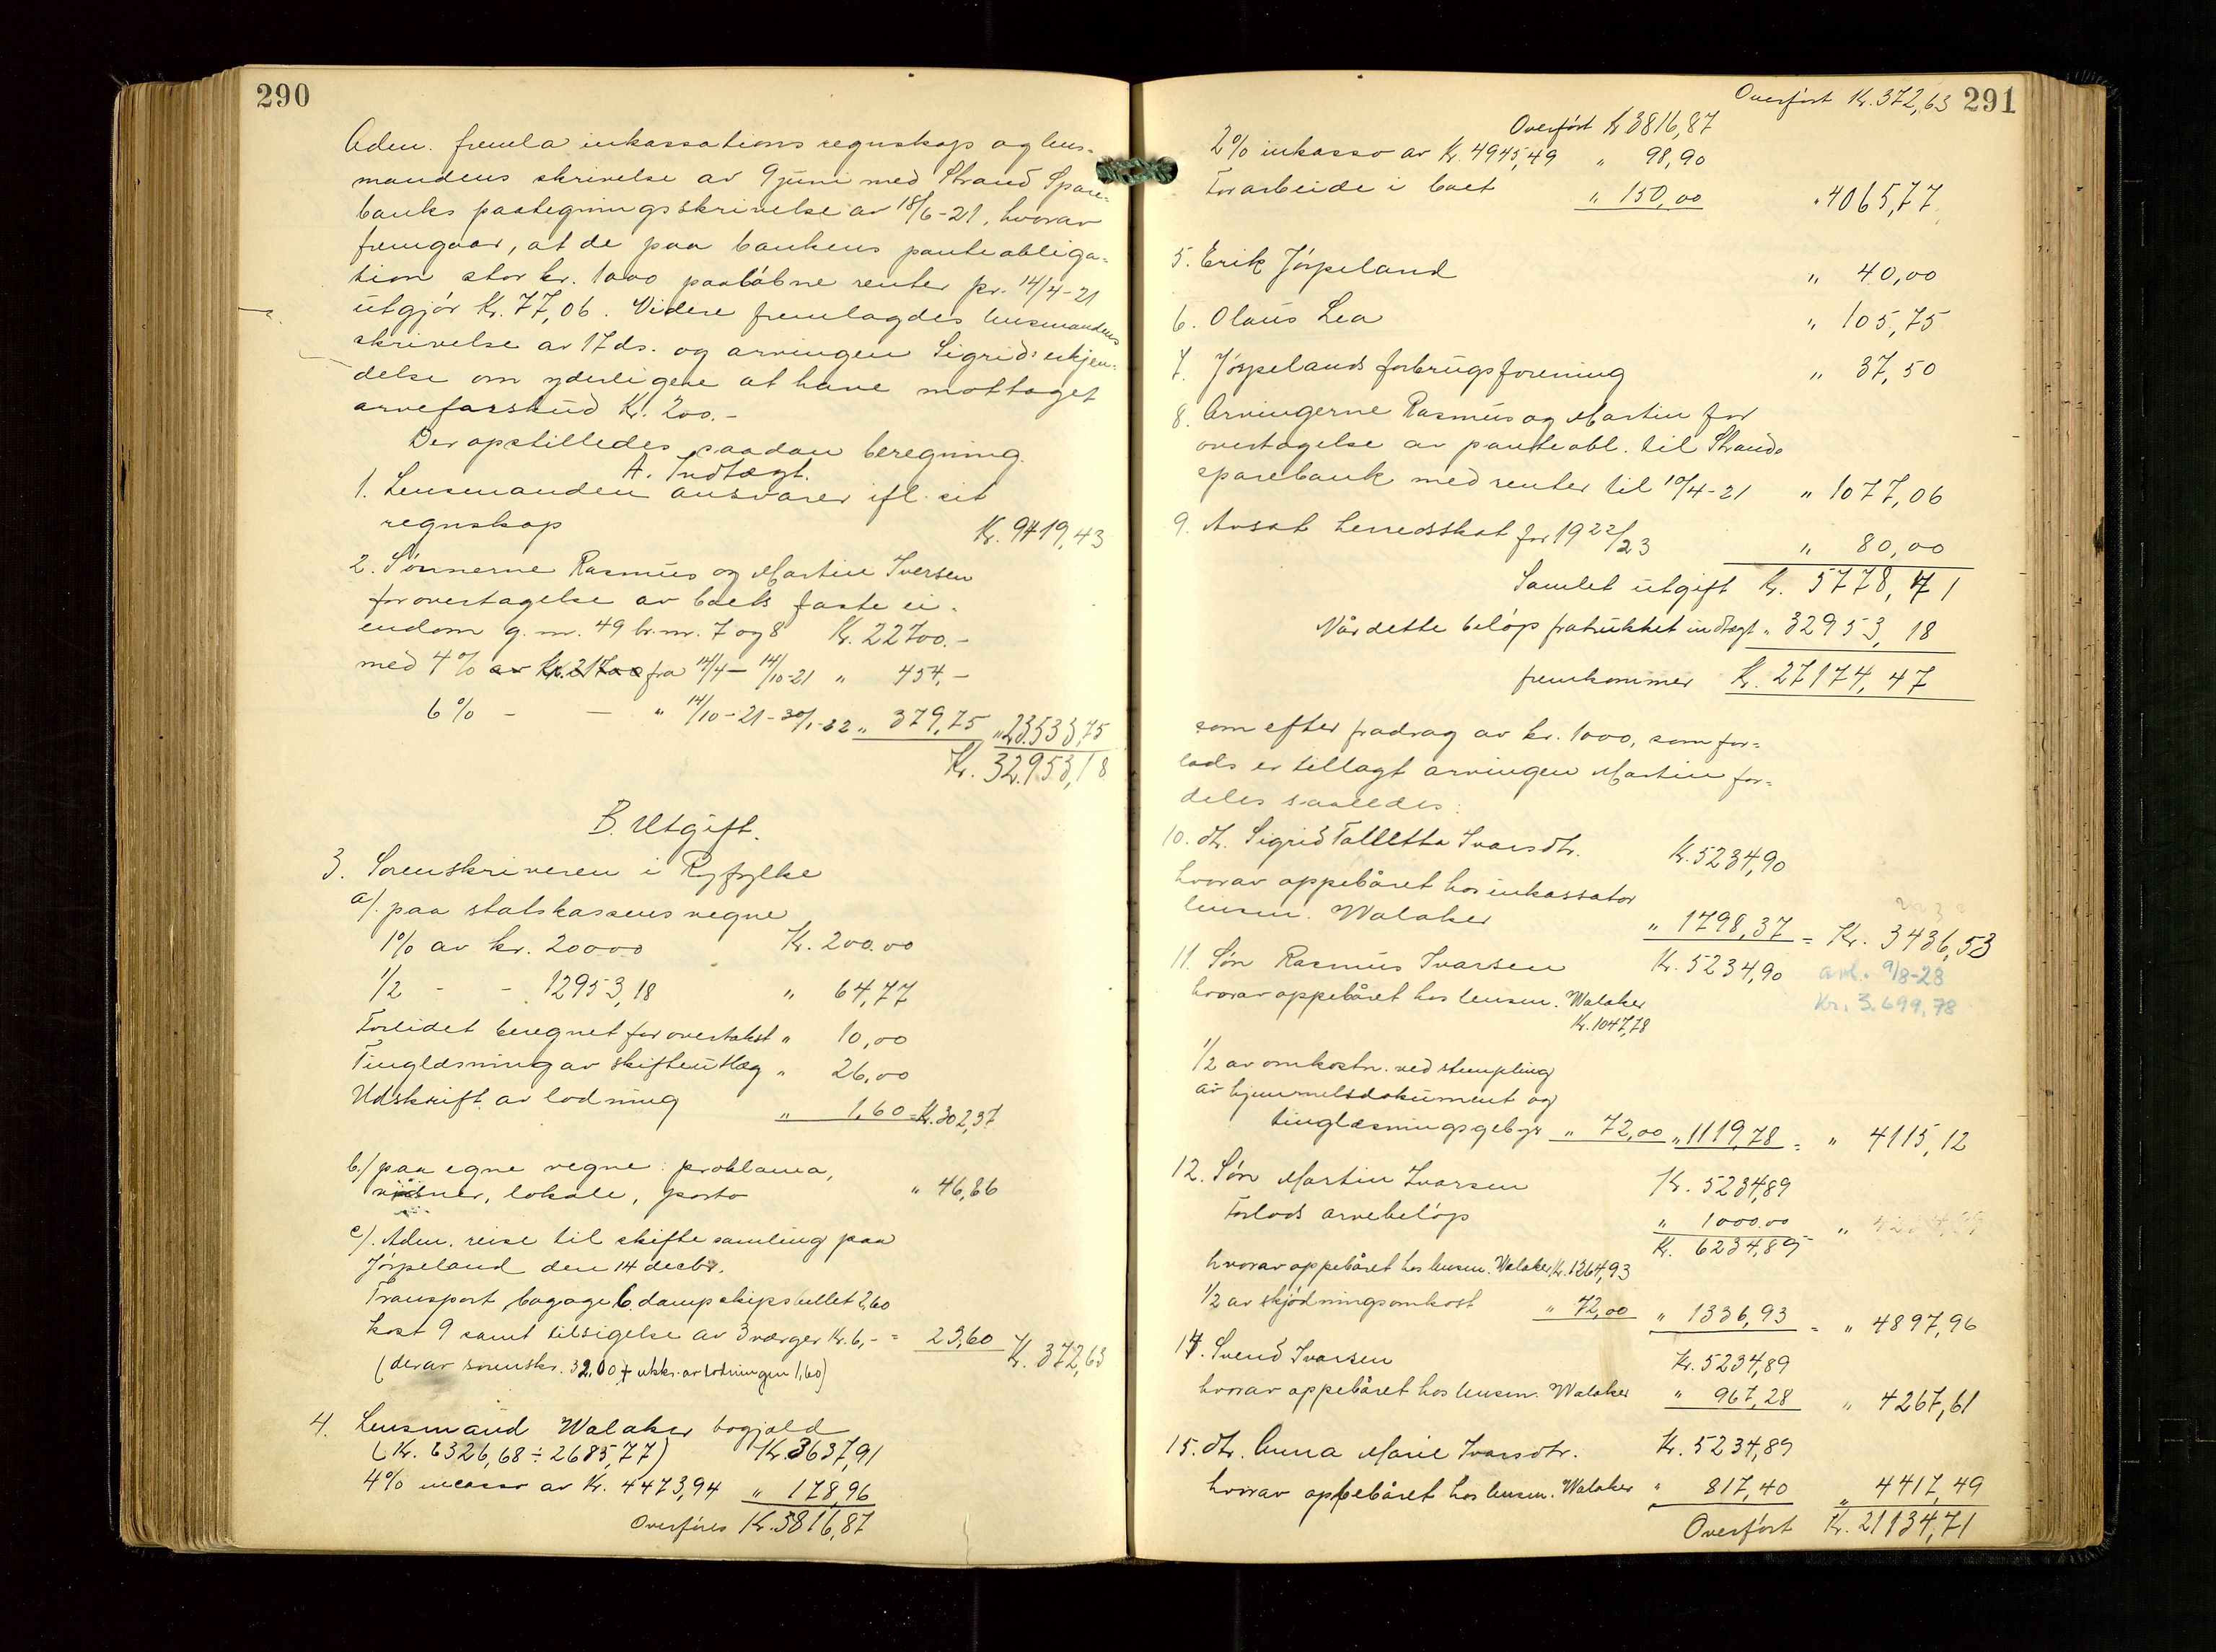 290
Adm. fremla inkassations regnskap og lens-
mandens skrivelse av 9 juni med Strand Spare-
banks paategningsskrivelse av 18/6-21, hvorav
fremgaar, at de paa bankens panteobliga-
tion stor kr. 1000 paaløbne renter pr. 14/4-21
utgjør Kr. 77,06. Videre fremlagdes lensmandens
skrivelse av 17 ds. og arvingen Sigrid: erkjen-
delse om yderligere at have mottaget
arveforskud Kr. 200.-
Der opstilledes saadan beregning.
A. Indtægt.
1. Lensmanden ansvarer ifl. sit
regnskap Kr. 9419,43
2. Sønnerne Rasmus og Martin Iversen
for overtagelse av boets faste ei-
endom g. nr. 49 br. nr. 7 og 8 Kr. 22700.-
med 4% av Kr. 21700 fra 14/4 - 14/10-21 " 454,-
6% - - " 14/10-21-30/1-22 " 379,75 " 23533,75
Kr. 32953,18
B. Utgift.
3. Sorenskriveren i Ryfylke
a/. paa statskassens vegne
1% av kr. 20000 Kr. 200.00
1/2 - - 12953,18 " 64,77
Forleidet beregnet for overtakst " 10,00
Tinglæsning av skifteutlæg " 26,00
Udskrift av lodning " 1,60 = Kr. 302,37
b/ paa egne vegne: proklama,
vidner, lokale, porto " 46,66
c/. Adm. reise til skiftesamling paa
Jørpeland den 14 decbr.
Transport bagage 6. dampskipsbillet 2,60
kost 9 samt tilsigelse av 3 værger Kr. 6,- = 23,60 Kr. 372,63
(derav sorenskr. 32.00 + utskr. av lodningen 1,60)
4. Lensmand Walaker bogjæld
(Kr. 6326,68 ÷ 2685,77) Kr. 3637,91
4% incasso av Kr. 4473,94 " 178,96
Overføres Kr. 3816,87
Overført Kr. 372,63 291
Overført Kr 3816,87
2% inkasso av Kr. 4945,49 " 98,90
For arbeide i boet " 150,00 " 4065,77
5. Erik Jørpeland " 40,00
6. Olaus Lea " 105,75
7. Jørpelands forbrugsforening " 37,50
8. Arvingerne Rasmus og Martin for
overtagelse av panteobl. til Strands
sparebank med renter til 14/4-21 " 1077,06
9. Avsat herredsskat for 1922/23 " 80,00
Samlet utgift Kr. 5778,71
Når dette beløp fratrukket indtægt " 32953,18
fremkommer Kr. 27174,47
som efter fradrag av kr. 1000, som for-
lods er tillagt arvingen Martin for-
deles saaledes:
10. dtr. Sigrid Talletta Ivarsdtr. Kr. 5234,90
hvorav oppebåret hos inkassator
lensm. Walaker " 1798,37 = Kr. 3436,53
11. Søn Rasmus Ivarsen Kr. 5234,90 avl. 9/8-28
hvorav oppebåret hos lensm. Walaker Kr. 3.699,78
Kr. 1047,78
1/2 av omkostn. ved stempling
av hjemmelsdokument og
tinglæsningsgebyr " 72,00 " 1119,78 = " 4115,12
12. Søn Martin Ivarsen Kr. 5234,89
Forlods arvebeløp " 1000.00
Kr. 6234,89
hvorav oppebåret hos lensm. Walaker Kr. 1264,93
1/2 av skjødningsomkost " 72,00 " 1336,93 = " 4897,96
14. Svend Ivarsen Kr. 5234,89
hvorav oppebåret hos lensm. Walaker " 967,28 " 4267,61
15. dtr. Anna Marie Ivarsdtr. Kr. 5234,89
hvorav oppebåret hos lensm. Walaker " 817,40 " 4417,49
Overført Kr. 21134,71